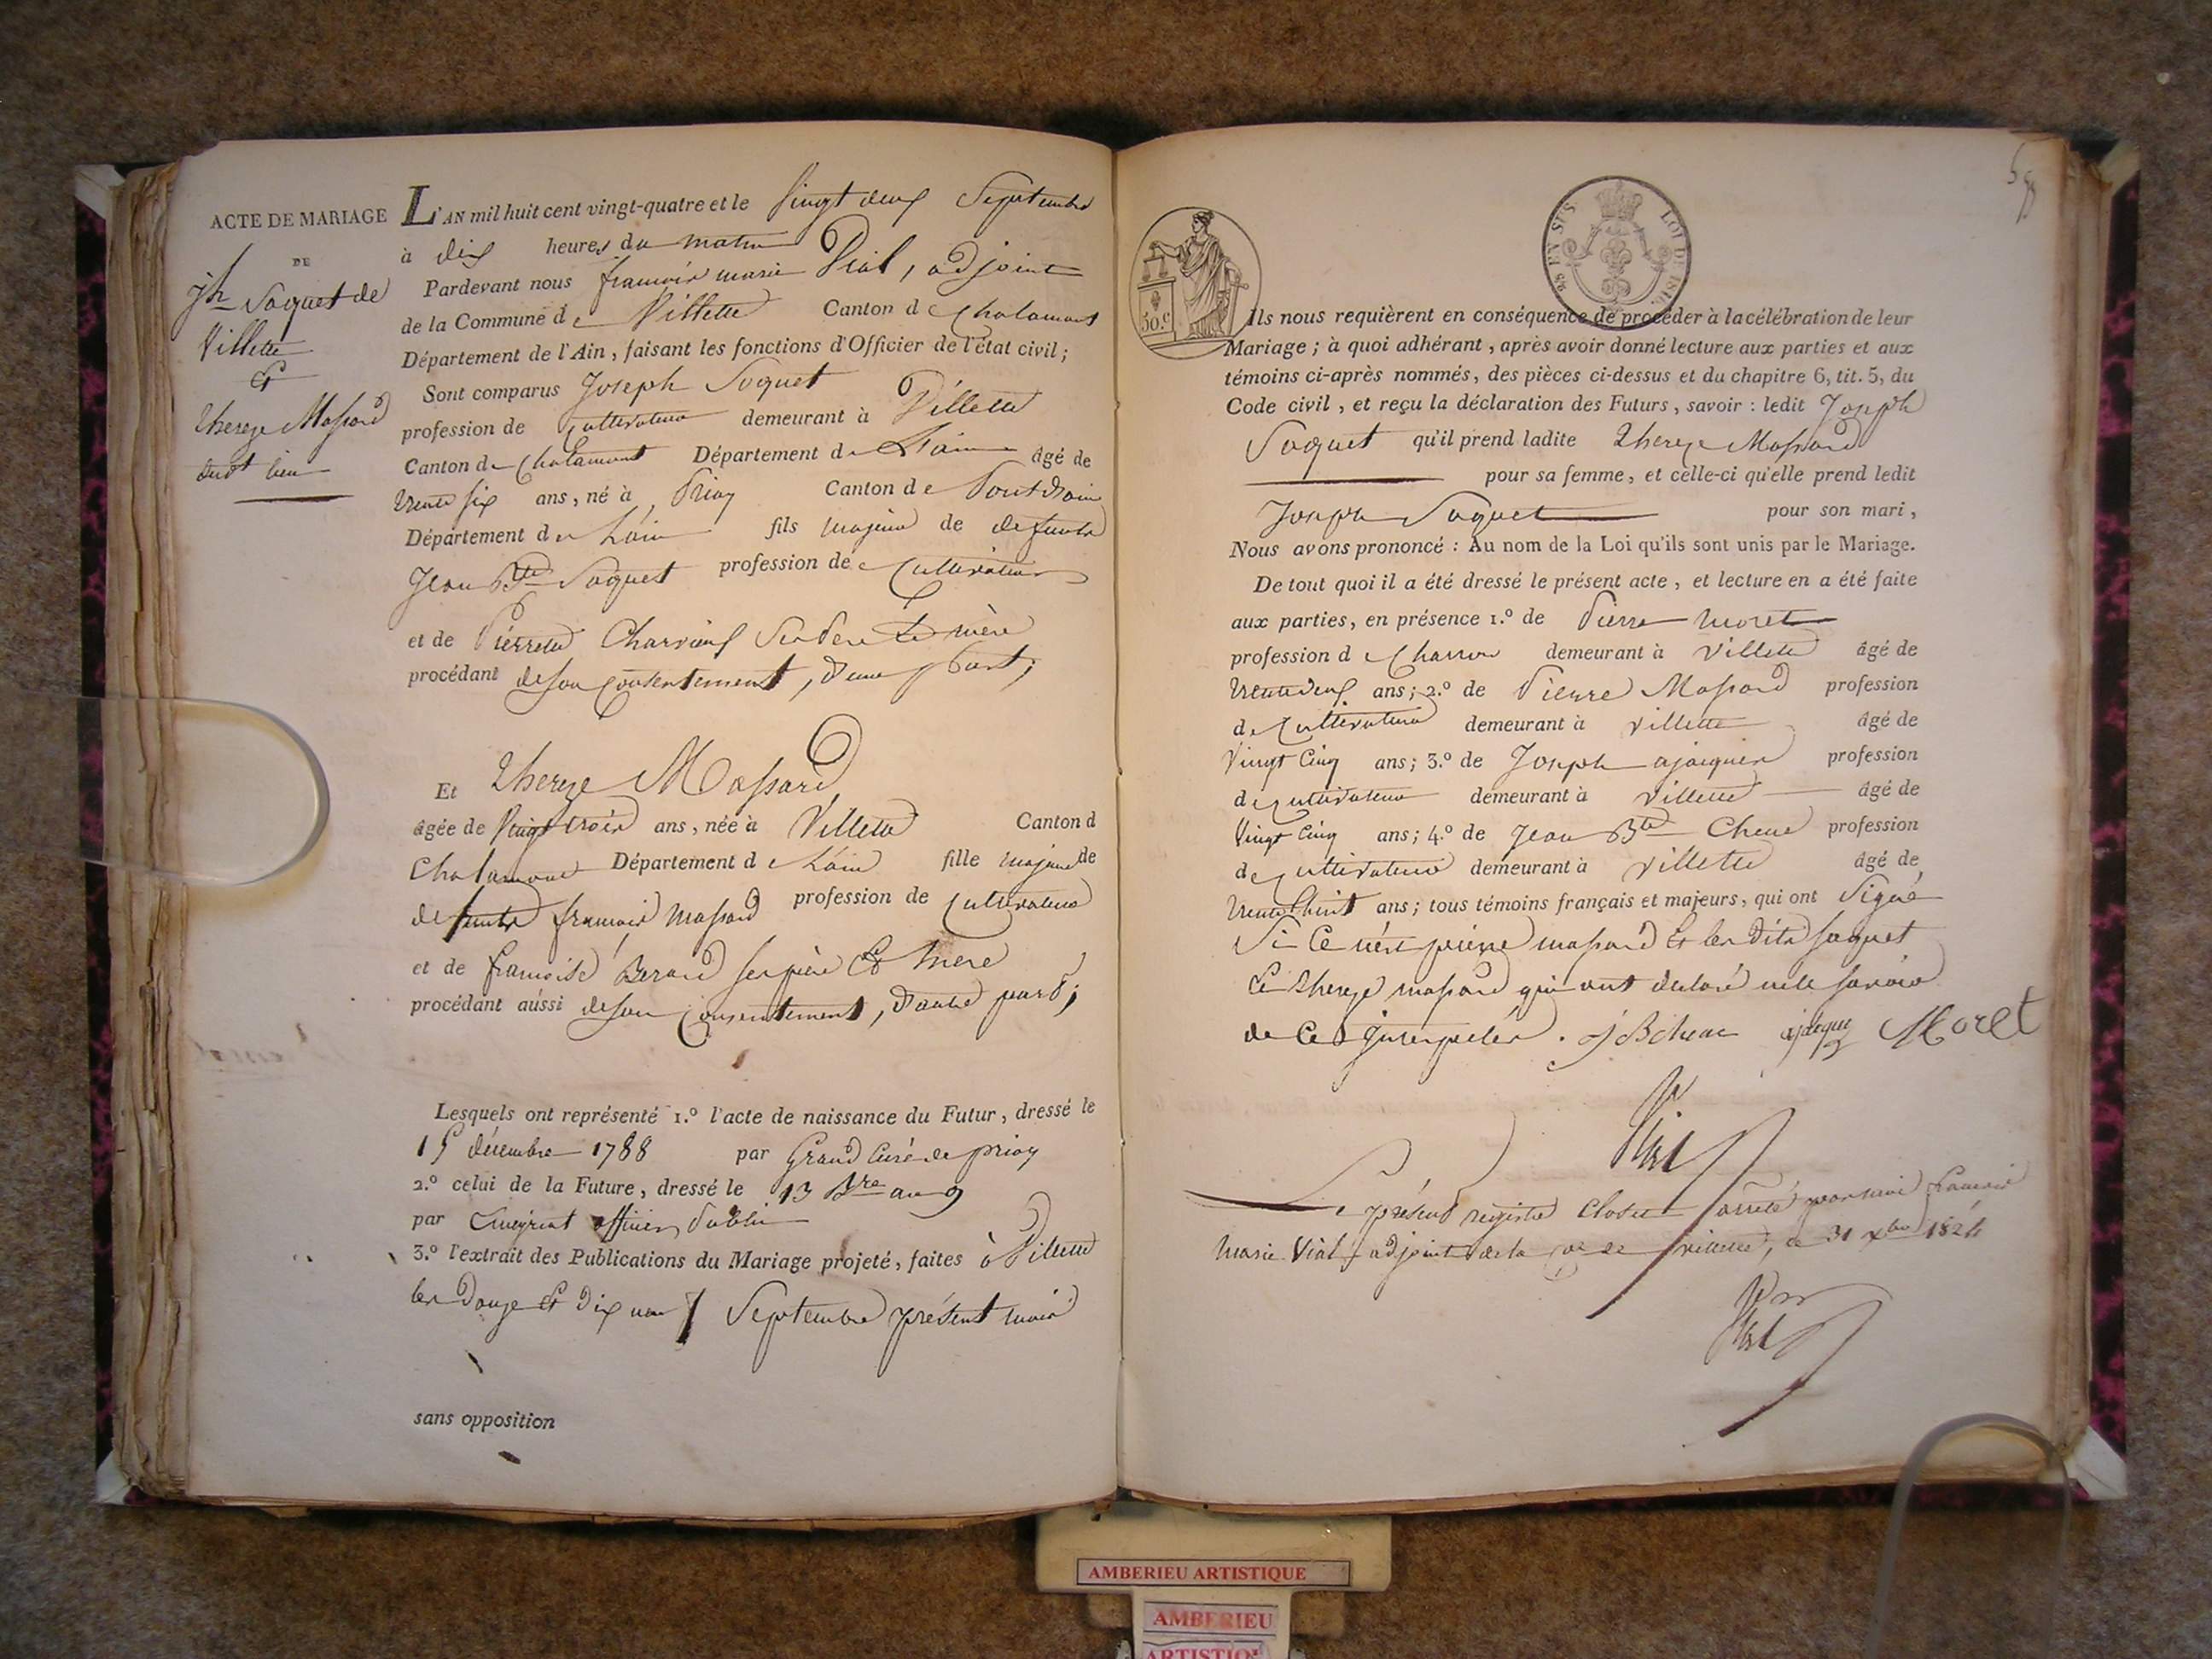 ACTE DE MARIAGE
DE
Jh Soquet de
Villette
Et
Thereze Massard
dudt lieu
L'AN mil huit cent vingt-quatre et le vingt deux Septembre
à dix heures du matin
Pardevant nous francois marie Vial, adjoint
de la Commune de Villette Canton de Chalamont
Département de l'Ain, faisant les fonctions d'Officier de l'état civil;
Sont comparus Joseph Soquet
profession de Cultivateur demeurant à Villette
Canton de Chalamont Département de L'ain âgé de
trente six ans, né à Priay Canton de Pontdain
Département de L'ain fils majeur de defunts
Jean Bte Soquet profession de Cultivateur
et de Pierrette Charvieux Ses Pere Et mère
procédant de son Consentement, d'une Part;
Et Thereze Massard
âgée de Vingt trois ans, née à Villette Canton d
Chalamont Département de L'ain fille majeure de
defunts francois Massard profession de Cultivateur
et de francoise Berard ses père Et Mere
procédant aussi de son Consentement, d'autre part;
Lesquels ont représenté 1.º l'acte de naissance du Futur, dressé le
15 décembre 1788 par Grand Curé de priay
2.º celui de la Future, dressé le 13 Bre an 9
par officier Public
3.º l'extrait des Publications du Mariage projeté, faites à Villette
les Douze Et Dix neuf Septembre présent mois
sans opposition
30.c
LOI DE 1816.
Ils nous requièrent en conséquence de procéder à la célébration de leur
Mariage; à quoi adhérant, après avoir donné lecture aux parties et aux
témoins ci-après nommés, des pièces ci-dessus et du chapitre 6, tit. 5, du
Code civil, et reçu la déclaration des Futurs, savoir: ledit Joseph
Soquet qu'il prend ladite Thereze Massard
pour sa femme, et celle-ci qu'elle prend ledit
Joseph Soquet pour son mari,
Nous avons prononcé: Au nom de la Loi qu'ils sont unis par le Mariage.
De tout quoi il a été dressé le présent acte, et lecture en a été faite
aux parties, en présence 1.º de Pierre Moret
profession de Charron demeurant à Villette âgé de
trente deux ans; 2.º de Pierre Massard profession
de Cultivateur demeurant à Villette âgé de
Vingt Cinq ans; 3.º de Joseph ajacquier profession
de Cultivateur demeurant à Villette âgé de
Vingt Cinq ans; 4.º de Jean Bte Chene profession
de Cultivateur demeurant à Villette âgé de
trente huit ans; tous témoins français et majeurs, qui ont Signé
Si Ce n'est pierre massard Et les dits soquet
Et thereze massard qui ont declaré ne le savoir
de Ce Interpeller. JBChene Moret
Vial
Le présent registre Clos et arreté par nous francois
Marie Vial adjoint de la Cne de Villette, ce 31 xbre 1824
Vial
AMBERIEU ARTISTIQUE
AMBERIEU
ARTISTIQUE